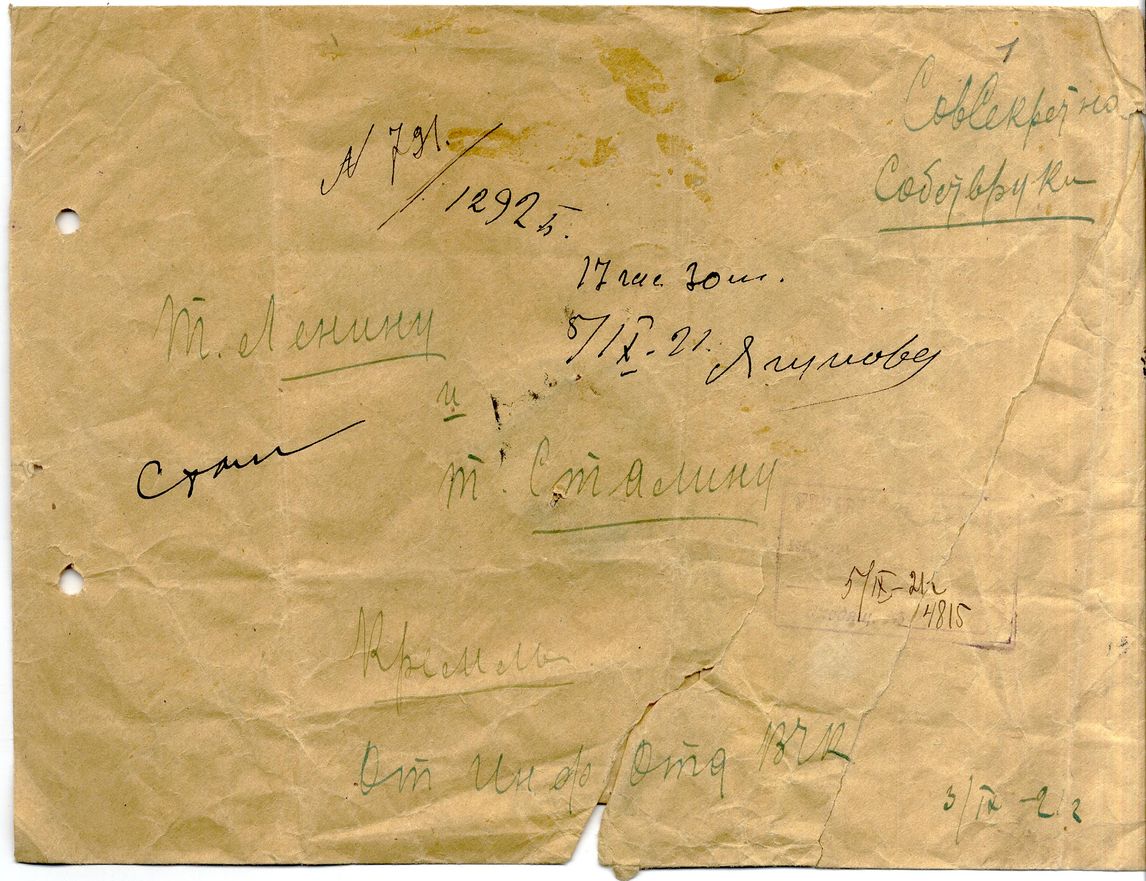 1
СовСекретно
Собств руки
N 791.
/1292 Б.
17 час 30 м.
5/IX-21.
Т. Ленину
и
Т. Сталину
5/IX-21г
14815
Кремль.
От Инф Отд ВЧК
3/IX-21г